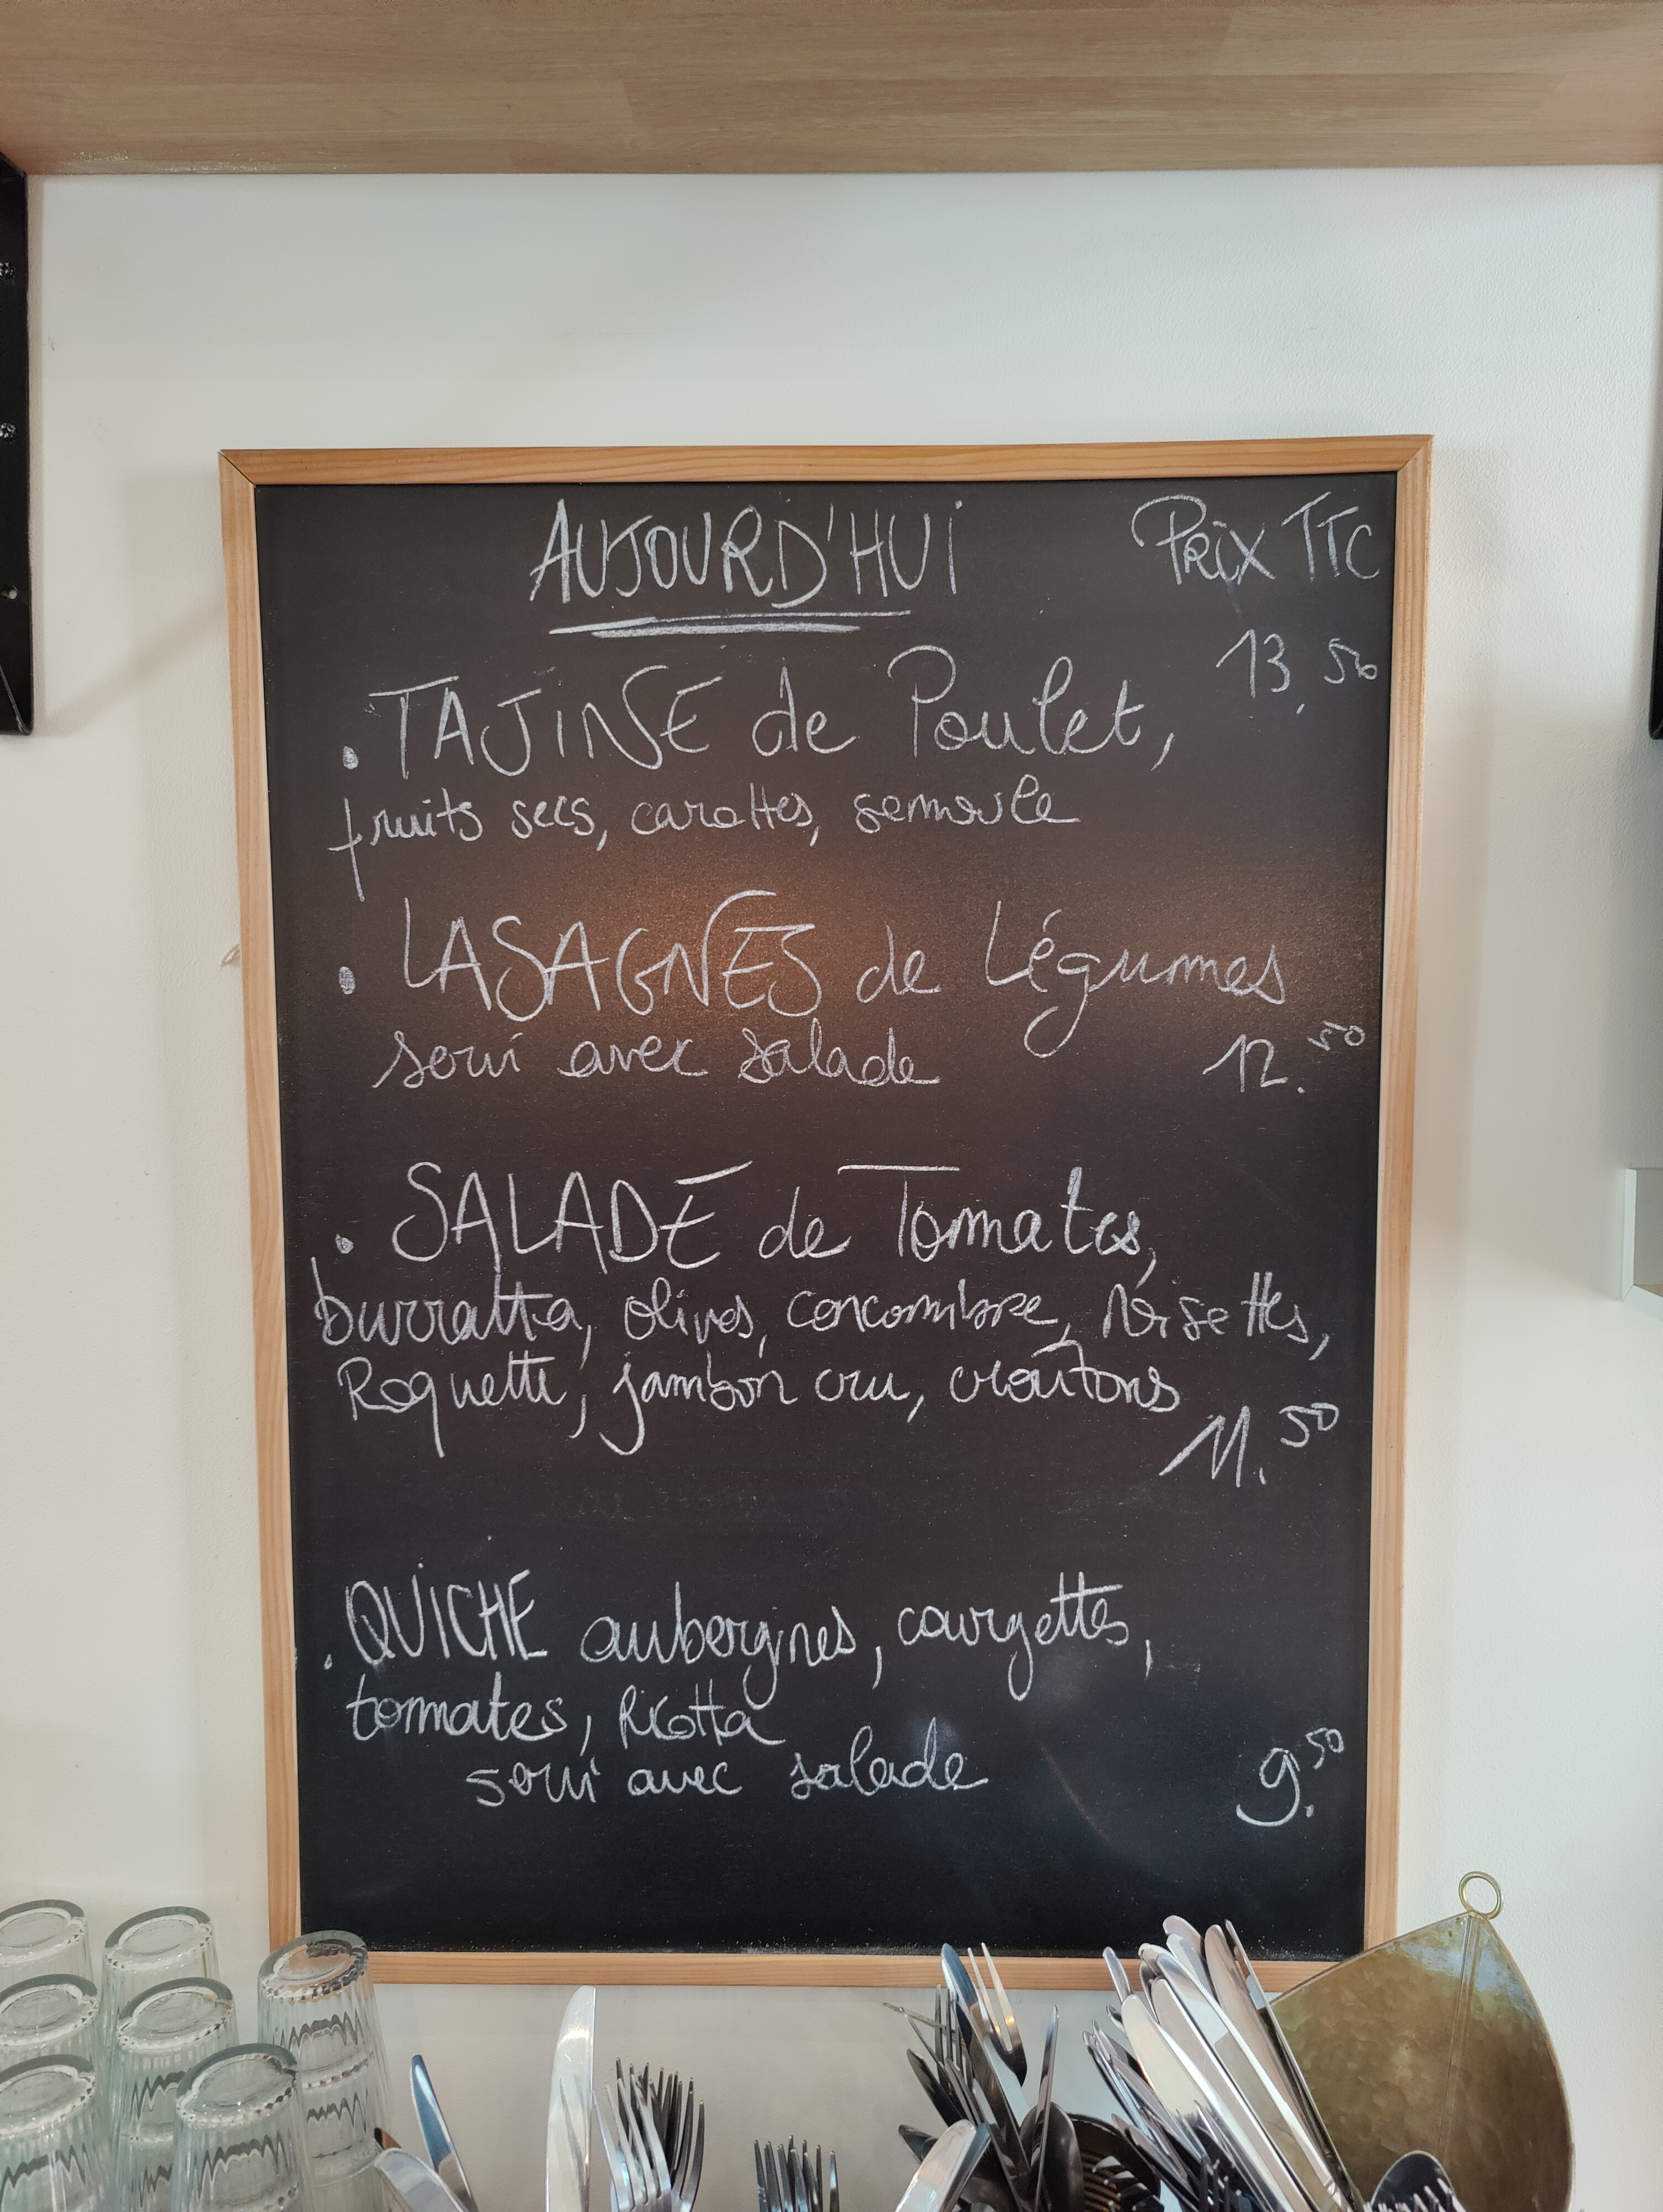 AUJOURD'HUI Prix TTC
13,50
. TAJINE de Poulet,
fruits secs, carottes, semoule
. LASAGNES de Légumes
servi avec salade 12.50
. SALADE de Tomates,
burratta, olives, concombre, noisettes,
Roquette, jambon cru, croûtons
11.50
. QUICHE aubergines, courgettes,
tomates, Ricotta
servi avec salade 9.50